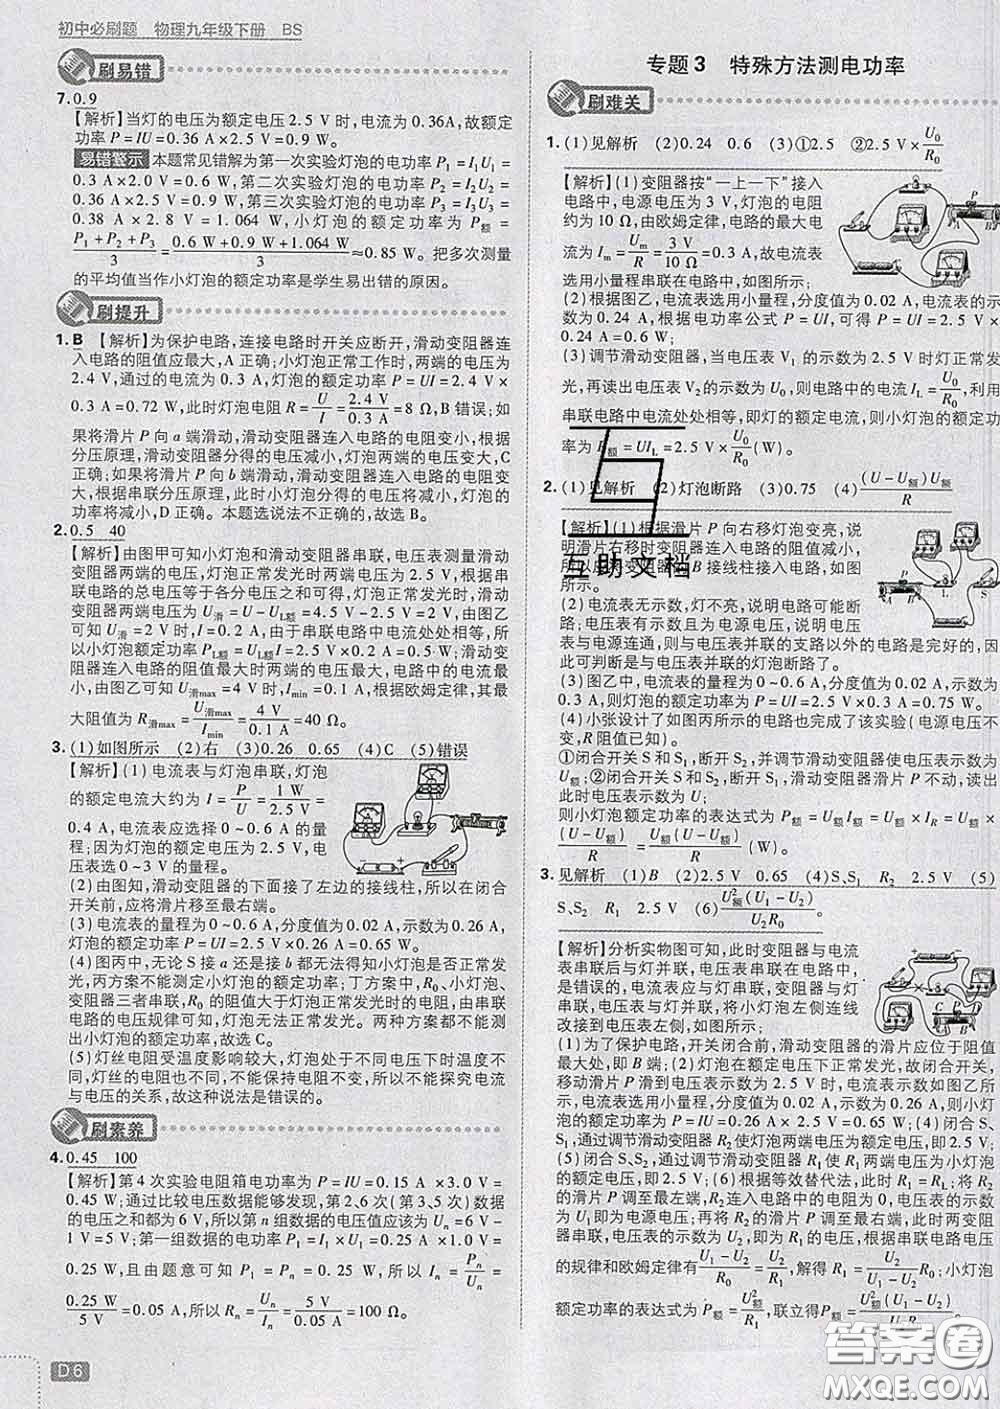 初中必刷题 物理九年级下册 BS
刷易错
7. 0.9
【解析】当灯的电压为额定电压2.5 V时,电流为0.36A,故额定
功率P=IU=0.36 A×2.5 V=0.9 W。
易错警示 本题常见错解为第一次实验灯泡的电功率P₁=I₁U₁=
0.3 A×2.0 V=0.6 W,第二次实验灯泡的电功率P₂=I₂U₂=
0.36 A×2.5 V=0.9 W,第三次实验灯泡的电功率P₃=I₃U₃=
0.38 A×2.8 V=1.064 W,小灯泡的额定功率为P额=
(P₁+P₂+P₃)/3=(0.6 W+0.9 W+1.064 W)/3≈0.85 W。把多次测量
的平均值当作小灯泡的额定功率是学生易出错的原因。
刷提升
1. B 【解析】为保护电路,连接电路时开关应断开,滑动变阻器连
入电路的阻值应最大,A正确;小灯泡正常工作时,两端的电压为
2.4 V,通过的电流为0.3 A,灯泡的额定功率P=UI=2.4 V×
0.3 A=0.72 W,此时灯泡电阻R=U/I=2.4 V/0.3 A=8 Ω,B错误;如
果将滑片P向a端滑动,滑动变阻器连入电路的电阻变小,根据
分压原理,滑动变阻器分得的电压减小,灯泡两端的电压变大,C
正确;如果将滑片P向b端滑动,滑动变阻器连入电路的电阻变大,
根据串联分压原理,此时小灯泡分得的电压将减小,灯泡的
功率将减小,D正确。本题选说法不正确的,故选B。
2. 0.5 40
【解析】由图甲可知小灯泡和滑动变阻器串联,电压表测量滑动
变阻器两端的电压,灯泡正常发光时两端电压为2.5 V,根据串联
电路的总电压等于各个分电压之和可得,灯泡正常发光时滑动
变阻器两端的电压U滑=U-UL额=4.5 V-2.5 V=2 V,由图乙
可知U滑=2 V时,I=0.2 A,由于串联电路中电流处处相等,所
以小灯泡额定功率PL额=UL额I=2.5 V×0.2 A=0.5 W;滑动
变阻器连入电路的阻值最大时两端的电压最大,电路中的电流最
小,由图乙可知U滑max=4 V时,Imin=0.1 A,根据欧姆定律,其最
大阻值为R滑max=U滑max/Imin=4 V/0.1 A=40 Ω。
3. (1)如图所示 (2)右 (3)0.26 0.65 (4)C (5)错误
【解析】(1)电流表与灯泡串联,灯泡
的额定电流大约为I=P/U=1 W/2.5 V=
0.4 A,电流表应选择0~0.6 A的量
程;因为灯泡的额定电压为2.5 V,电
压表选0~3 V的量程。
(2)由图知,滑动变阻器的下面接了左边的接线柱,所以在闭合
开关前,应将滑片移至最右端。
(3)电流表的量程为0~0.6 A,分度值为0.02 A,示数为0.26 A,
灯泡的额定功率P=UI=2.5 V×0.26 A=0.65 W。
(4)图丙中,无论S接a还是接b都无法得知小灯泡是否正常发
光,丙方案不能测定小灯泡的额定功率;丁方案中,R₀、小灯泡、
变阻器三者串联,R₀的阻值大于灯泡正常发光时的电阻,由串联
电路的电压规律可知,灯泡无法正常发光。两种方案都不能测
出小灯泡的额定功率,故选C。
(5)灯丝电阻受温度影响较大,灯泡处于不同电压下时温度不
同,灯丝的电阻变化较大,不能保证电阻不变,不能探究电流
与电压的关系,故这种说法是错误的。
刷素养
4. 0.45 100
【解析】第4次实验电阻箱电功率为P=IU=0.15 A×3.0 V=
0.45 W;通过比较电压数据能够发现,第2、6次(第3、5次)数据
的电压之和都为6 V,所以第n组数据的电压值应该为Uₙ=6 V-
1 V=5 V;第一组数据的电功率P₁=I₁×U₁=0.25 A×1.0 V=
0.25 W,且由题意可知P₁=Pₙ=0.25 W,所以Iₙ=Pₙ/Uₙ=
0.25 W/5 V=0.05 A,所以Rₙ=Uₙ/Iₙ=5 V/0.05 A=100 Ω。
D6
专题3 特殊方法测电功率
刷难关
1. (1)见解析 (2)0.24 0.6 (3)①2.5 ②2.5 V×U₀/R₀
【解析】(1)变阻器按“一上一下”接入
电路中,电源电压为3 V,灯泡的电阻
约为10 Ω,由欧姆定律,电路的最大电
流为Iₘ=Uₘ/R=3 V/10 Ω=0.3 A,故电流表
选用小量程串联在电路中,如图所示。
(2)根据图乙,电流表选用小量程,分度值为0.02 A,电流表示
数为0.24 A,根据电功率公式P=UI,可得P=UI=2.5 V×
0.24 A=0.6 W;
(3)调节滑动变阻器,当电压表V₁的示数为2.5 V时灯正常发
光,再读出电压表V₂的示数为U₀,则电路中的电流IL=U₀/R₀,利用
串联电路中电流处处相等,即灯的额定电流,则小灯泡的额定功
率为P额=UIL=2.5 V×U₀/R₀(W)。
2. (1)见解析 (2)灯泡断路 (3)0.75 (4)(U-U额)U额/R
【解析】(1)根据滑片P向右移灯泡变亮,说
明滑片右移时变阻器连入电路的阻值减小,
所以应将变阻器的B接线柱接入电路,如图
所示。
(2)电流表无示数,灯不亮,说明电路可能断
路;电压表有示数且为电源电压,说明电压
表与电源连通,则与电压表并联的支路以外的电路是完好的,因
此可判断是与电压表并联的灯泡断路了。
(3)图乙中,电流表的量程为0~0.6 A,分度值为0.02 A,示数为
0.3 A,则灯泡的额定功率为P=UI=2.5 V×0.3 A=0.75 W。
(4)小张设计了如图丙所示的电路也完成了该实验(电源电压不
变,R阻值已知)。
①闭合开关S和S₁,断开S₂,并调节滑动变阻器使电压表示数为
U额;②闭合开关S和S₂,断开S₁,滑动变阻器滑片P不动,读出
此时电压表示数为U;
则小灯泡额定功率的表达式为P额=U额I额=U额×IR=U额×
(U-U额)/R=U额(U-U额)/R=(U-U额)U额/R(W)。
3. 见解析 (1)B (2)2.5 0.65 (4)S、S₁ R₂ 2.5 V (5)
S、S₂ R₁ 2.5 V (6)U²额(U₁-U₂)/U₂R₀
【解析】分析实物图可知,此时变阻器与电流
表串联后与灯并联,电压表串联在电路中,
是错误的,电流表应与灯串联,变阻器与灯串
联,电压表与灯并联,将小灯泡左侧连线
改接到电压表左侧,如图所示:
(1)为了保护电路,开关闭合前,滑动变阻器的滑片应位于阻值
最大处,即B端;(2)灯泡在额定电压下正常发光,故闭合开关,
移动滑片P到电压表示数为2.5 V;(3)电流表示数如图乙所
示,电流表选用小量程,分度值为0.02 A,示数为0.26 A,则灯泡
的额定功率为P=IU=0.26 A×2.5 V=0.65 W;(4)闭合S、
S₁,通过调节滑动变阻器R₂使灯泡两端电压为额定电压,即2.5 V;
(5)闭合S、S₂,通过调节滑动变阻器R₁使灯泡两端电压为额
定电压,即2.5 V;(6)根据等效替代法,此时R₁=RL,将R₂
的滑片P调至最左端,此时连入电路中的电阻为0,电压表的示数
为U₁即为电源电压;再将R₂的滑片P调至最右端,此时两变阻
器串联,电压表的示数为U₂,即为R₁的电压,根据串联电路电压
的规律和欧姆定律有(U₁-U₂)/R₀=U₂/R₁,解得R₁=U₂/(U₁-U₂)R₀;小灯泡
额定功率的表达式为P额=U²额/R₁,联立得P额=U²额(U₁-U₂)/U₂R₀。
互助文档
答案圈
MXQE.COM